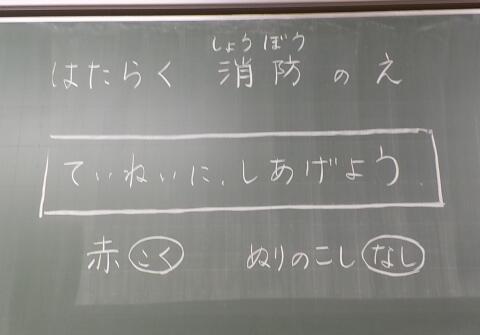 しょうぼう
はたらく 消防 の え
ていねいに、しあげよう
赤 こく ぬりのこし なし